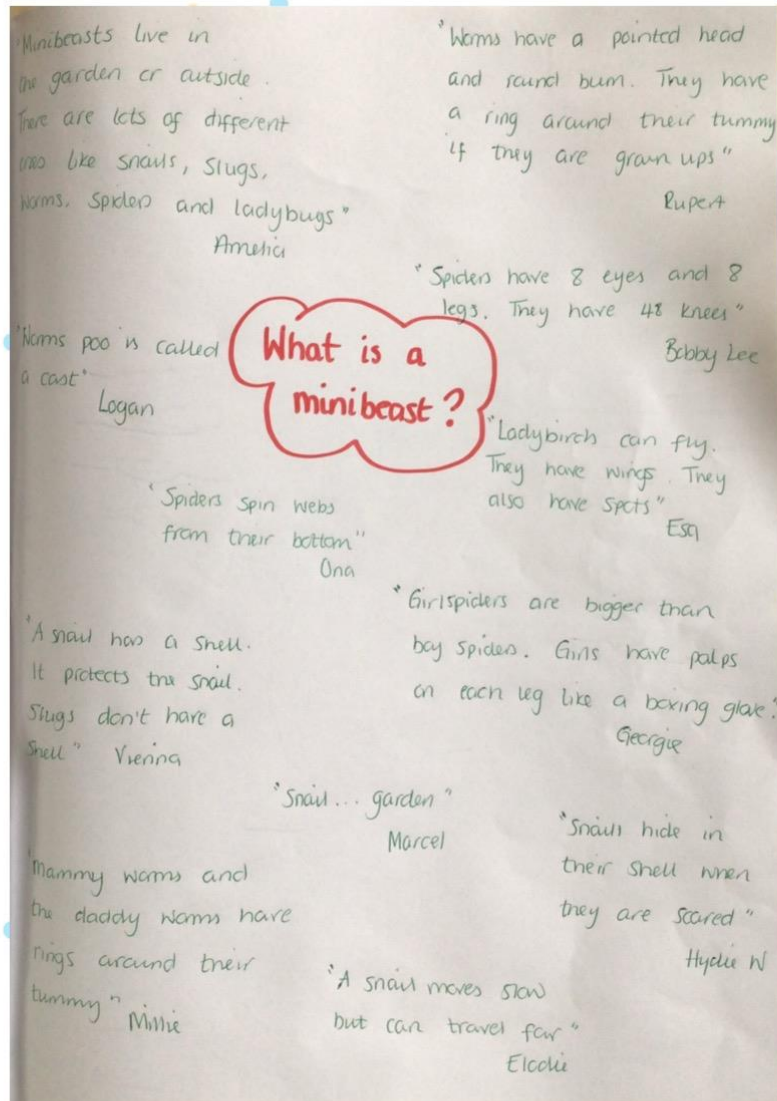 "Minibeasts live in
the garden or outside.
There are lots of different
ones like snails, slugs,
worms, spiders and ladybugs"
Amelia
"Worms have a pointed head
and round bum. They have
a ring around their tummy
if they are grown ups"
Rupert
"Spiders have 8 eyes and 8
legs. They have 48 knees"
Bobby Lee
"Worms poo is called
a cast"
Logan
What is a
minibeast?
"Ladybirds can fly.
They have wings. They
also have spots"
"Spiders spin webs
from their bottom"
Ona
"Girlspiders are bigger than
boy spiders. Girls have palps
on each leg like a boxing glove."
Georgie
"A snail has a shell.
It protects the snail.
Slugs don't have a
shell" Vienna
"Snail... garden"
Marcel
"Snails hide in
their shell when
they are scared"
Hydie W
"Mammy worms and
the daddy worms have
rings around their
tummy" Millie
"A snail moves slow
but can travel far"
Elodie